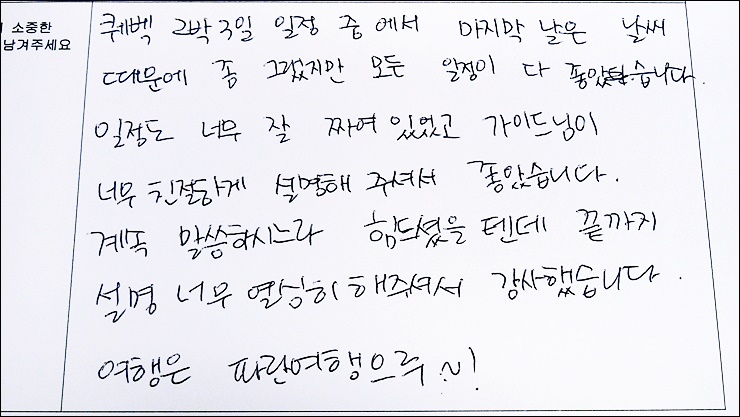 소중한
남겨주세요
퀘벡 2박 3일 일정 중에서 마지막 날은 날씨
때문에 좀 그랬지만 모든 일정이 다 좋았습니다.
일정도 너무 잘 짜여 있었고 가이드님이
너무 친절하게 설명해 주셔서 좋았습니다.
계속 말씀하시느라 힘드셨을 텐데 끝까지
설명 너무 열심히 해주셔서 감사했습니다.
여행은 파란여행으루~!